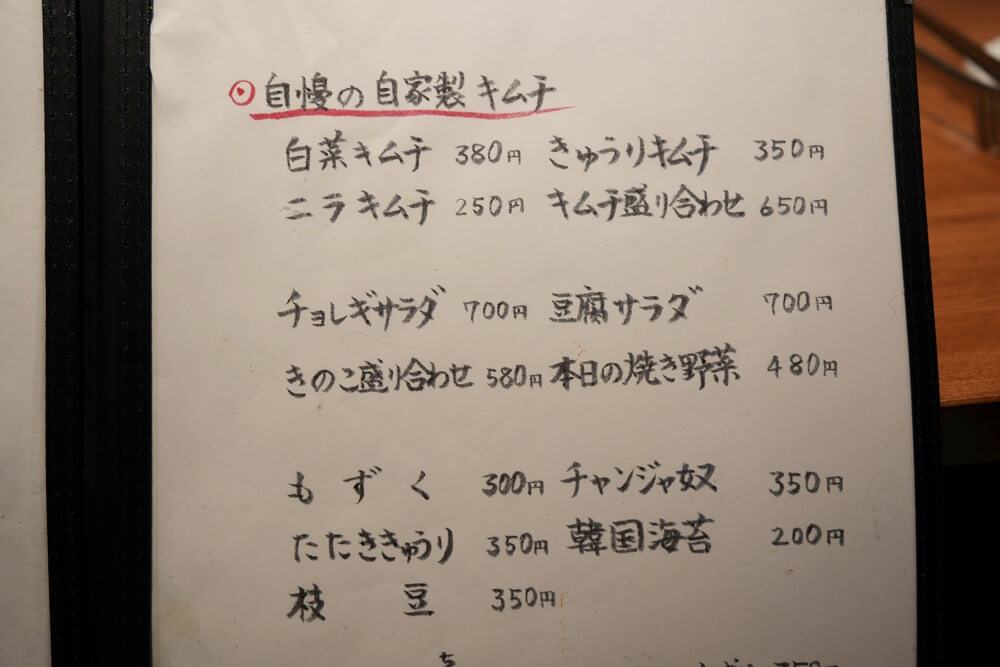 自慢の自家製キムチ
白菜キムチ 380円 きゅうりキムチ 350円
ニラキムチ 250円 キムチ盛り合わせ 650円
チョレギサラダ 700円 豆腐サラダ 700円
きのこ盛り合わせ 580円 本日の焼き野菜 480円
もずく 300円 チャンジャ奴 350円
たたききゅうり 350円 韓国海苔 200円
枝豆 350円